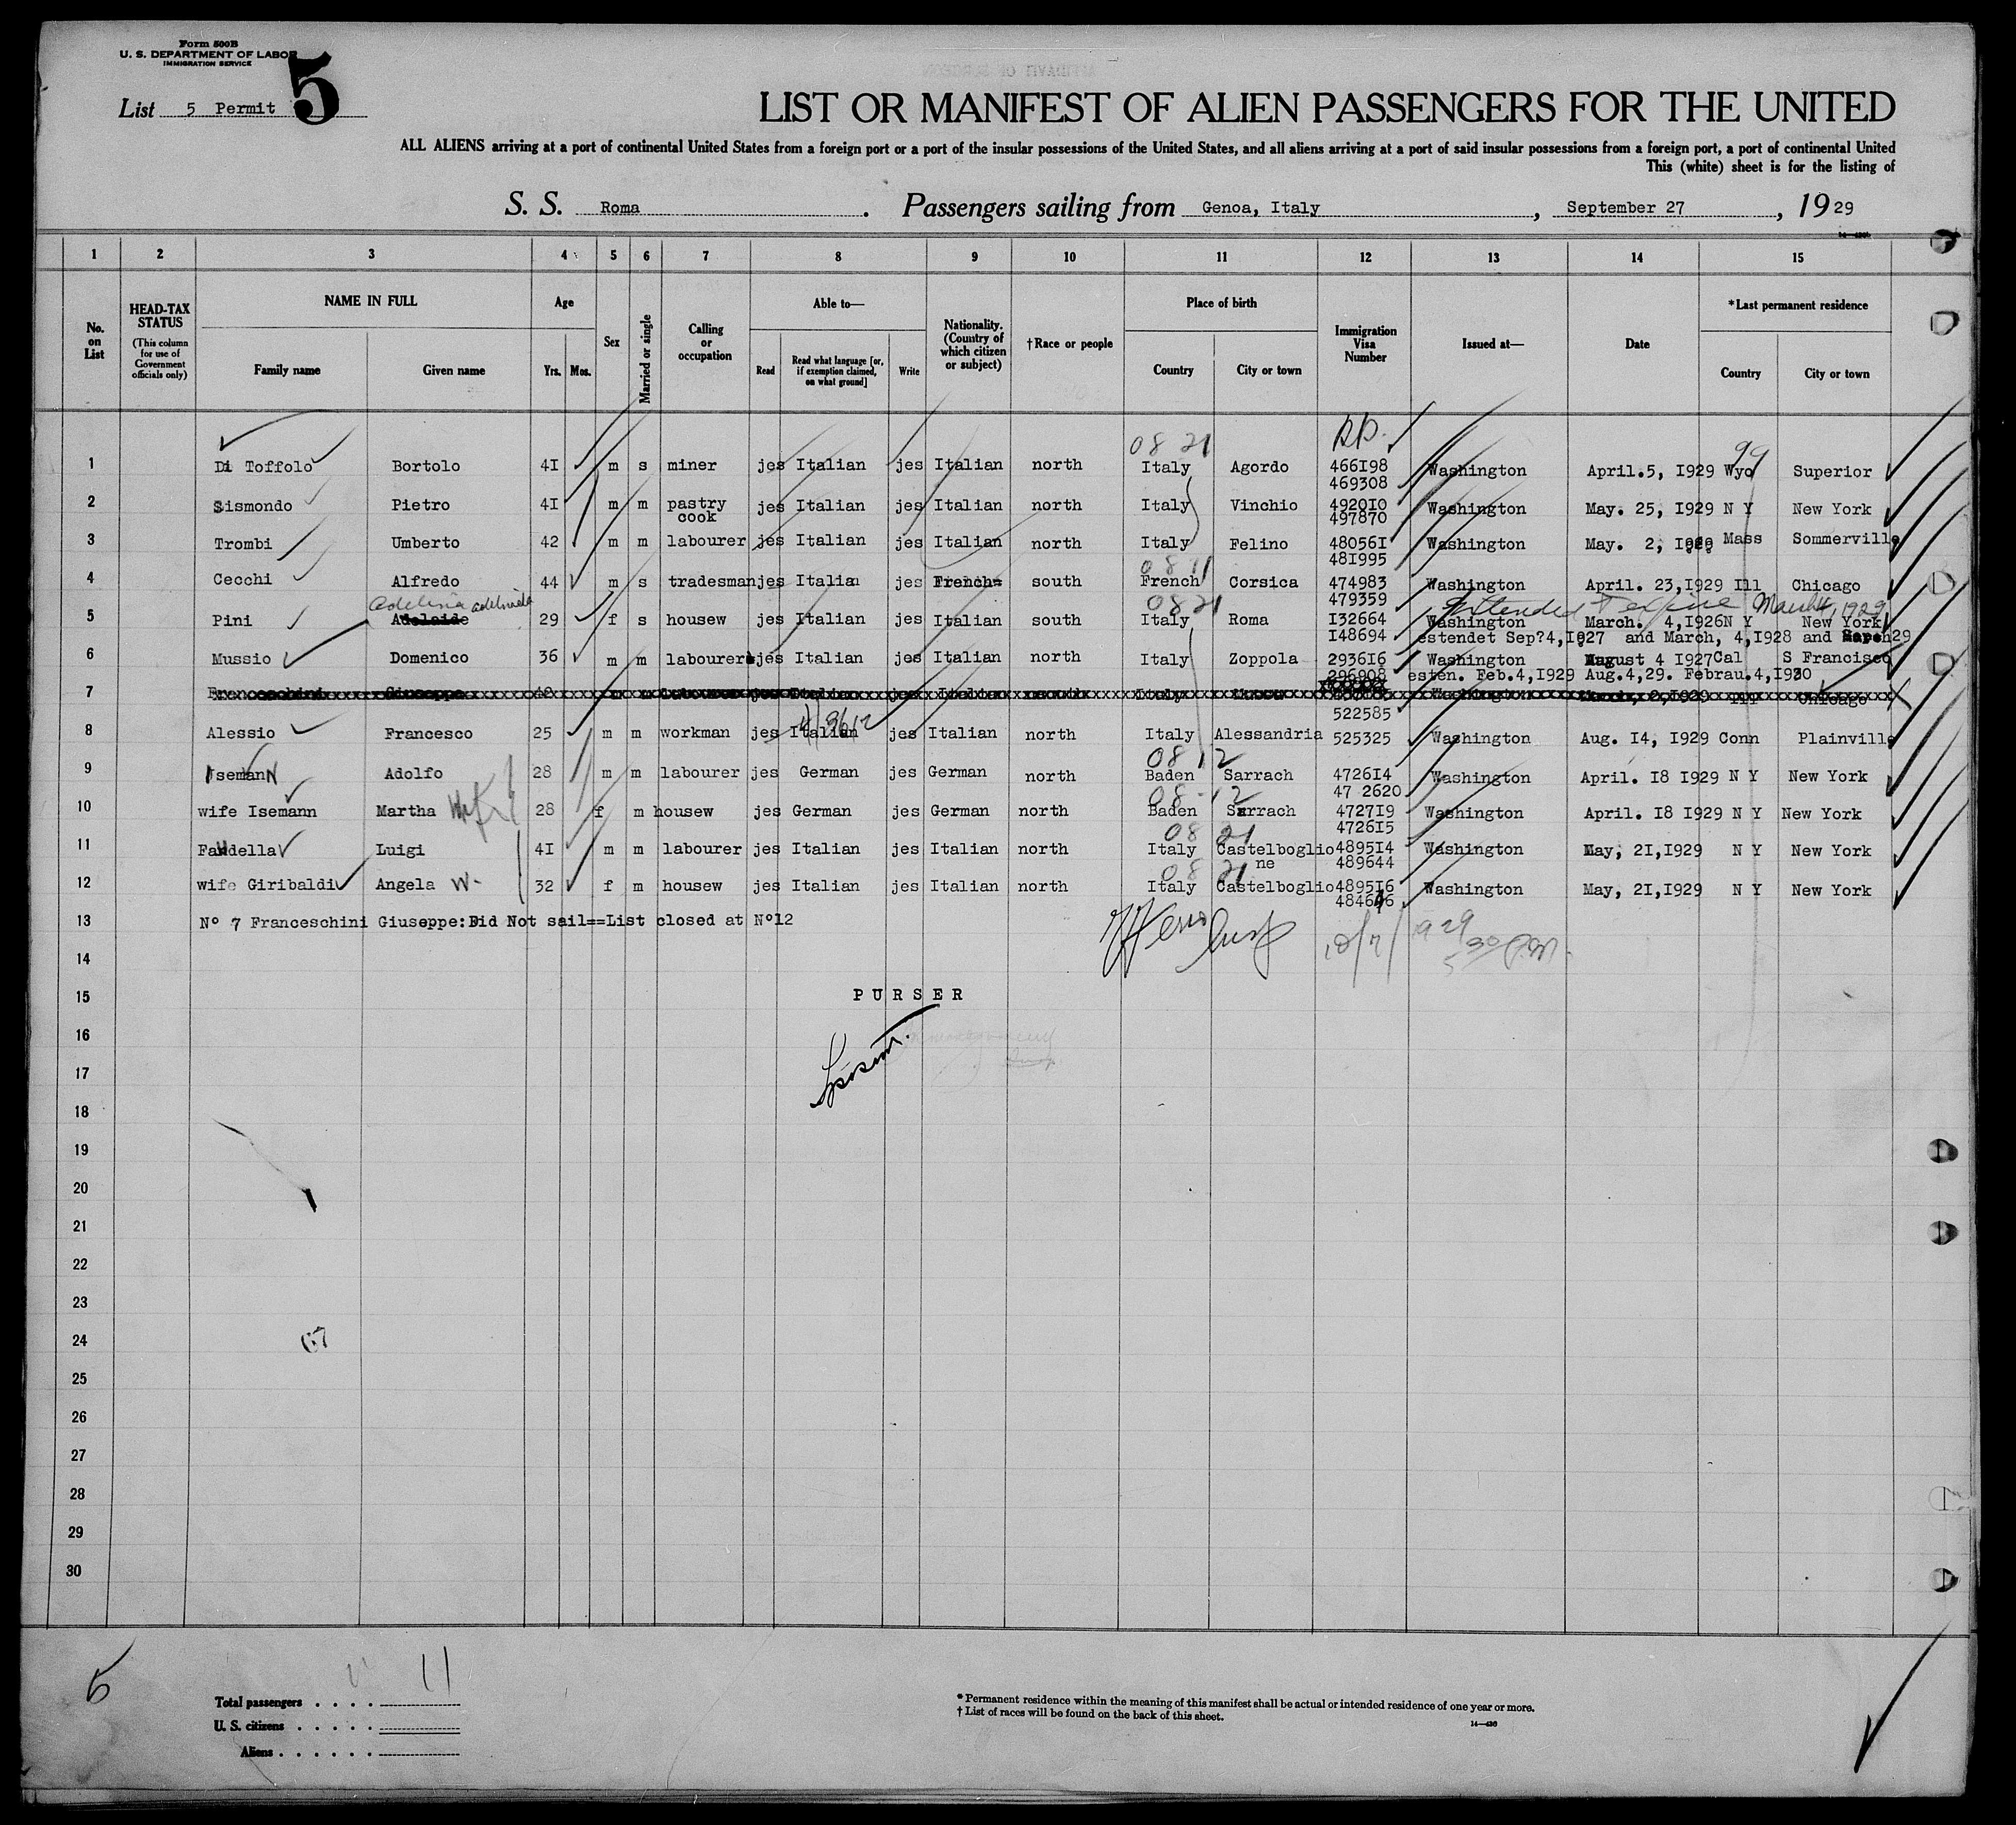 Form 500B
U. S. DEPARTMENT OF LABOR
IMMIGRATION SERVICE
List 5 Permit 5
LIST OR MANIFEST OF ALIEN PASSENGERS FOR THE UNITED
ALL ALIENS arriving at a port of continental United States from a foreign port or a port of the insular possessions of the United States, and all aliens arriving at a port of said insular possessions from a foreign port, a port of continental United
This (white) sheet is for the listing of
S. S. Roma. Passengers sailing from Genoa, Italy, September 27, 1929
1 2 3 4 5 6 7 8 9 10 11 12 13 14 15
No. on List
HEAD-TAX STATUS (This column for use of Government officials only)
NAME IN FULL Family name Given name
Age Yrs. Mos.
Sex
Married or single
Calling or occupation
Able to— Read Read what language [or, if exemption claimed, on what ground] Write
Nationality. (Country of which citizen or subject)
†Race or people
Place of birth Country City or town
Immigration Visa Number
Issued at—
Date
*Last permanent residence Country City or town
08 21 99
1 Di Toffolo Bortolo 4I m s miner jes Italian jes Italian north Italy Agordo 466I98 Washington April.5, I929 Wyo Superior
469308
2 Sismondo Pietro 4I m m pastry jes Italian jes Italian north Italy Vinchio 4920I0 Washington May. 25, I929 N Y New York
cook 497870
3 Trombi Umberto 42 m m labourer jes Italian jes Italian north Italy Felino 48056I Washington May. 2, I929 Mass Sommerville
48I995
08 11
4 Cecchi Alfredo 44 m s tradesman jes Italian jes French= south French Corsica 474983 Washington April. 23,I929 Ill Chicago
479359
Adelina 08 21 Extended March 4, 1929
5 Pini Adelaide 29 f s housew jes Italian jes Italian south Italy Roma I32664 Washington March. 4,I926 N Y New York
I48694 estendet Sep?4,I927 and March, 4,I928 and 29
6 Mussio Domenico 36 m m labourer jes Italian jes Italian north Italy Zoppola 2936I6 Washington August 4 I927 Cal S Francisco
296908 esten. Feb.4,I929 Aug.4,29. Febrau.4,I930
7 Franceschini Giuseppe m m labourer jes Italian jes Italian Italy Washington 2,I929 Ill Chicago
522585
8 Alessio Francesco 25 m m workman jes Italian jes Italian north Italy Alessandria 525325 Washington Aug. I4, I929 Conn Plainville
08 12
9 Isemann Adolfo 28 m m labourer jes German jes German north Baden Sarrach 4726I4 Washington April. I8 I929 N Y New York
47 2620
08 - 12
10 wife Isemann Martha 28 f m housew jes German jes German north Baden Sarrach 4727I9 Washington April. I8 I929 N Y New York
4726I5
08 21
11 Fandella Luigi 4I m m labourer jes Italian jes Italian north Italy Castelboglio 4895I4 Washington May, 2I,I929 N Y New York
ne 489644
08 21
12 wife Giribaldi Angela W- 32 f m housew jes Italian jes Italian north Italy Castelboglio 4895I6 Washington May, 2I,I929 N Y New York
13 Nº 7 Franceschini Giuseppe:Did Not sail==List closed at Nº12
10/7/1929
5 30 P.M.
14
15 PURSER
16
17
18
19
20
21
22
23
24
25
26
27
28
29
30
5
11
Total passengers
U. S. citizens
Aliens
* Permanent residence within the meaning of this manifest shall be actual or intended residence of one year or more.
† List of races will be found on the back of this sheet.
14—430